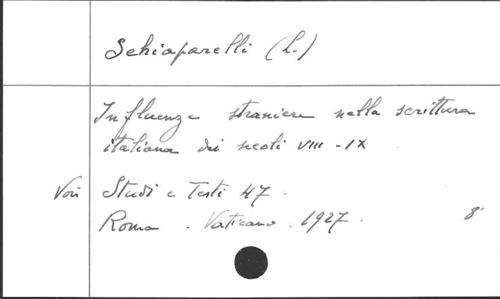 Schiaparelli (L.)
Influenze straniere nella scrittura
italiana dei secoli VIII-IX
Voir Studi e Testi 47.
Roma. Vaticano. 1927. 8°